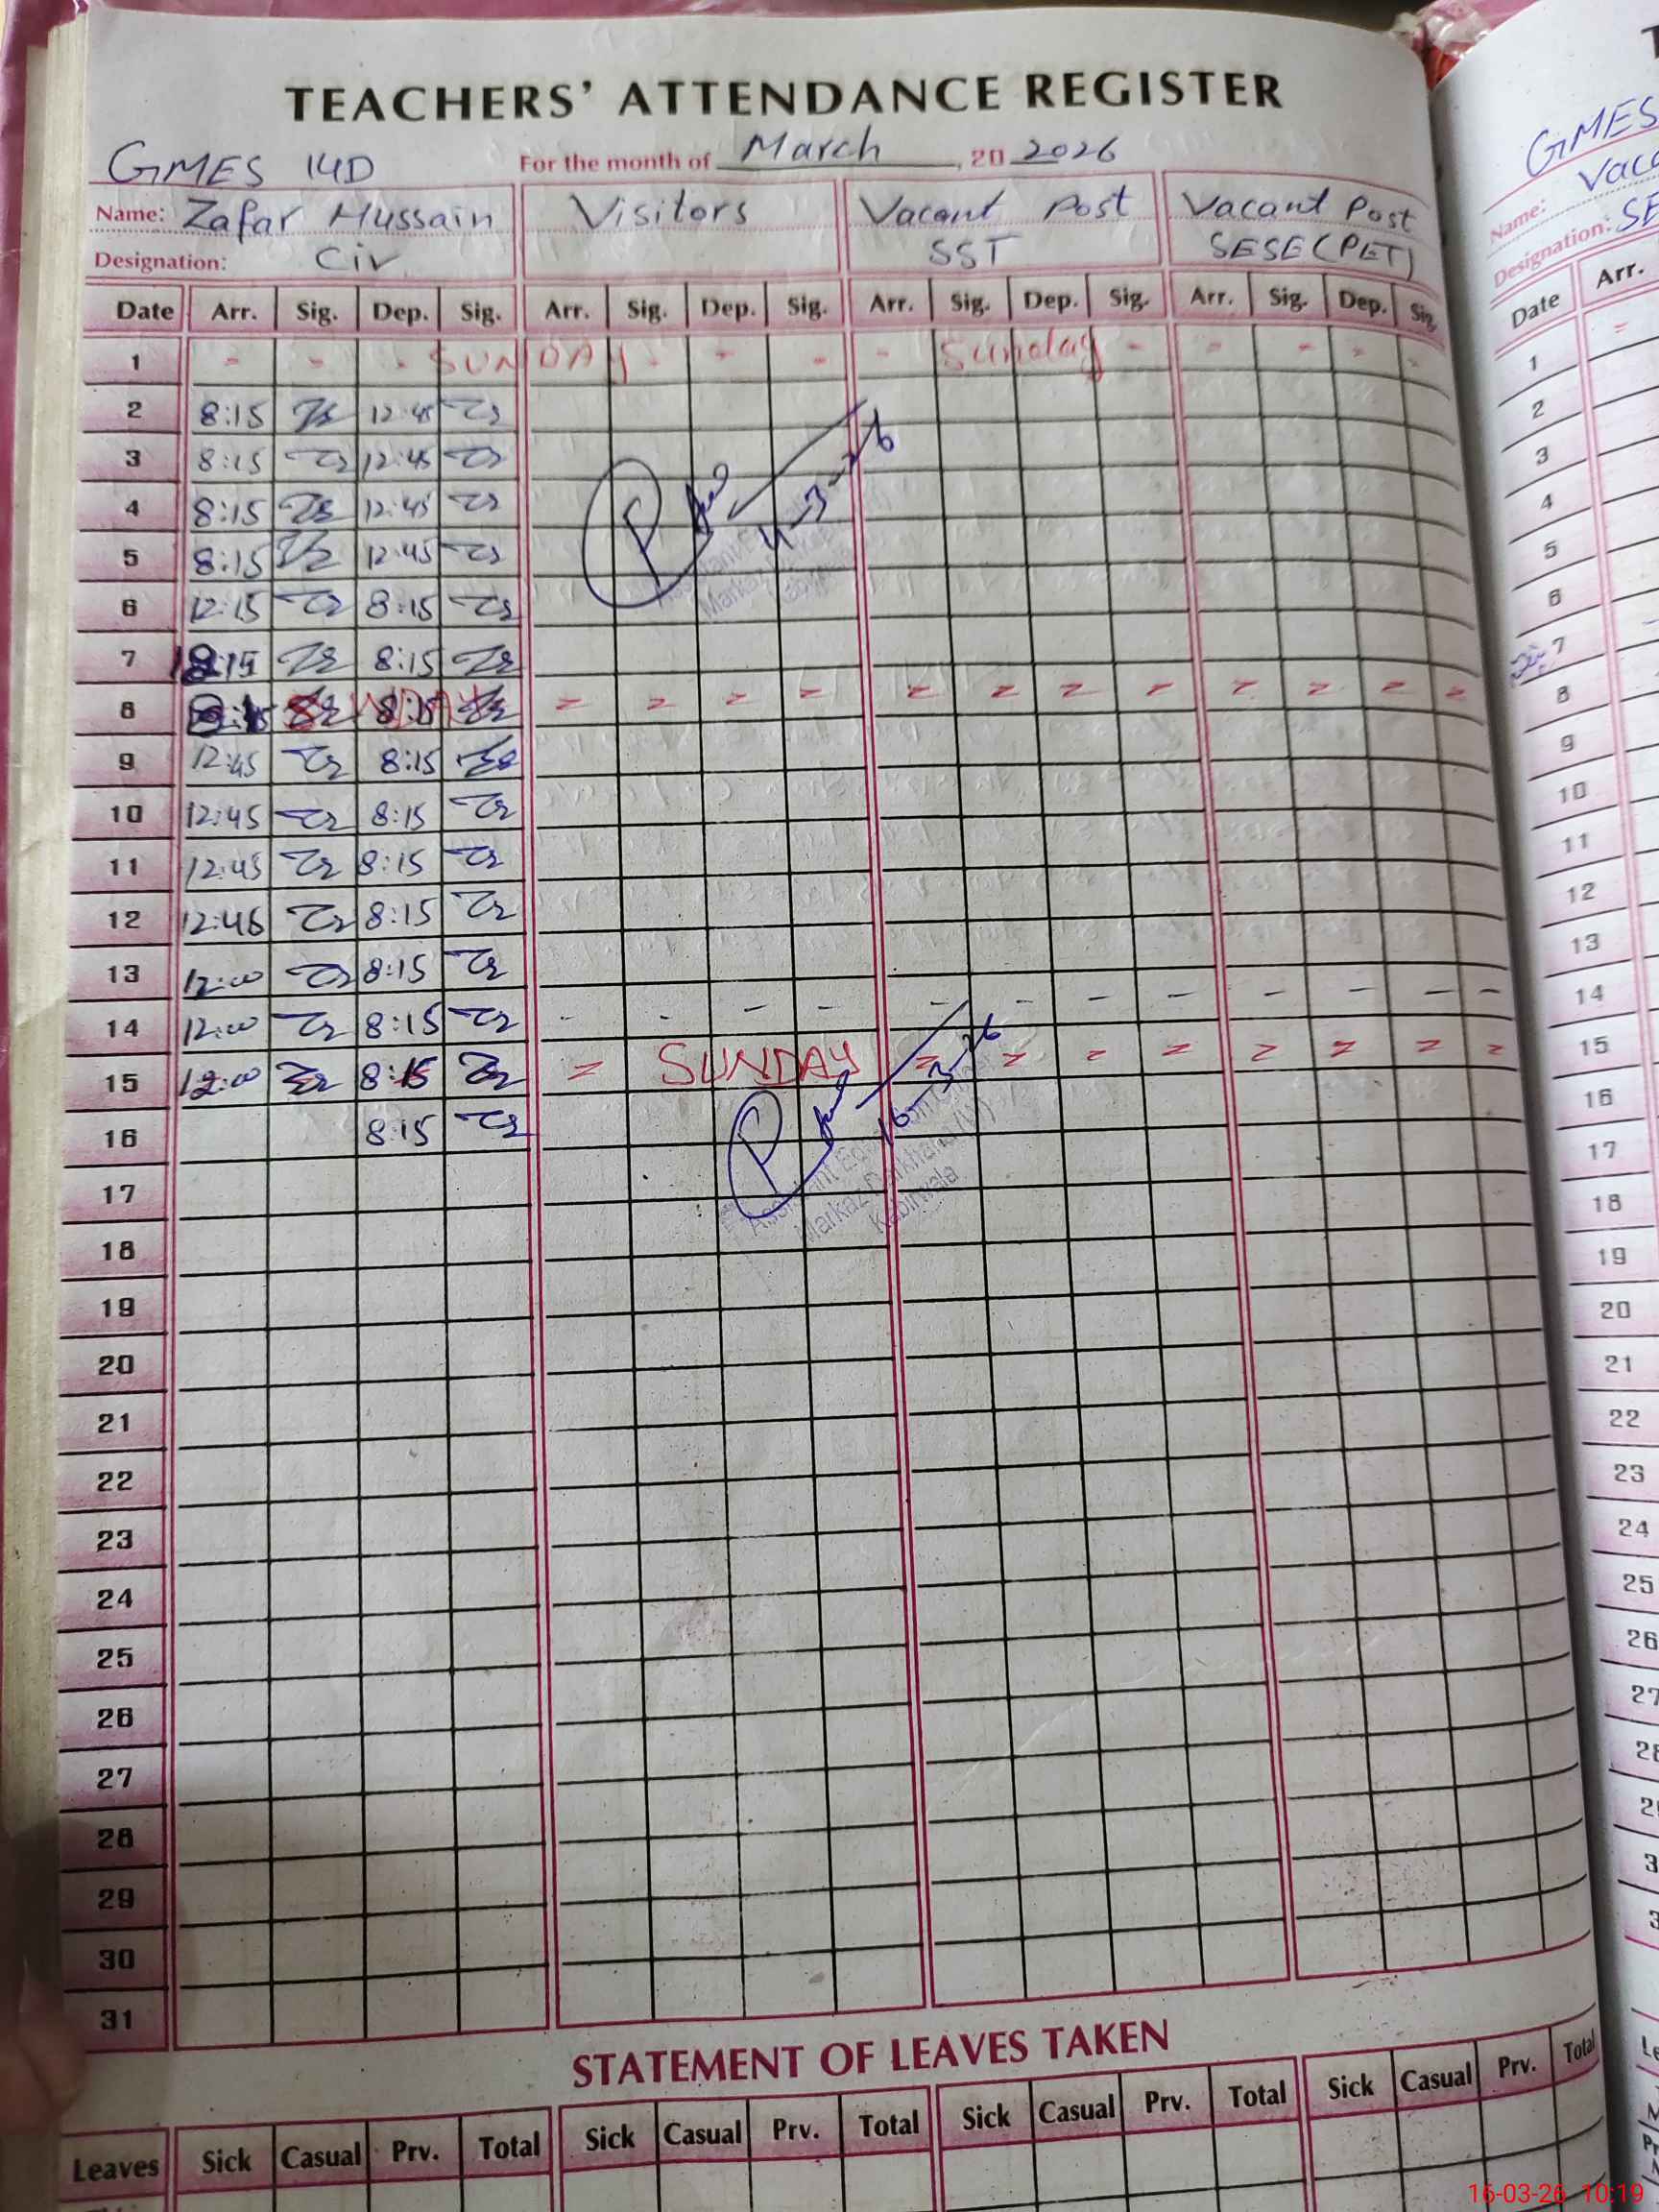 TEACHERS' ATTENDANCE REGISTER
GMES 14D For the month of March, 20 2026
Name: Zafar Hussain Visitors Vacant Post Vacant Post
Designation: Civ SST SESE (PET)
Date Arr. Sig. Dep. Sig. Arr. Sig. Dep. Sig. Arr. Sig. Dep. Sig. Arr. Sig. Dep. Sig.
1 - - - SUNDAY - - - - Sunday - - - - -
2 8:15 12:45
3 8:15 12:45
4 8:15 12:45
5 8:15 12:45
4-3-26
6 12:15 8:15
7 8:15
8 SUNDAY
9 12:45 8:15
10 12:45 8:15
11 12:45 8:15
12 12:45 8:15
13 12:00 8:15
14 12:00 8:15
15 12:00 8:15 = SUNDAY = = = = = = = =
16 8:15
16-3-26
Markaz
Kabirwala
17
18
19
20
21
22
23
24
25
26
27
28
29
30
31
STATEMENT OF LEAVES TAKEN
Leaves Sick Casual Prv. Total Sick Casual Prv. Total Sick Casual Prv. Total Sick Casual Prv. Total
GMES
Name:
Designation:
Date Arr.
1
2
3
4
5
6
7
8
9
10
11
12
13
14
15
16
17
18
19
20
21
22
23
24
25
26
16-03-26 10:19